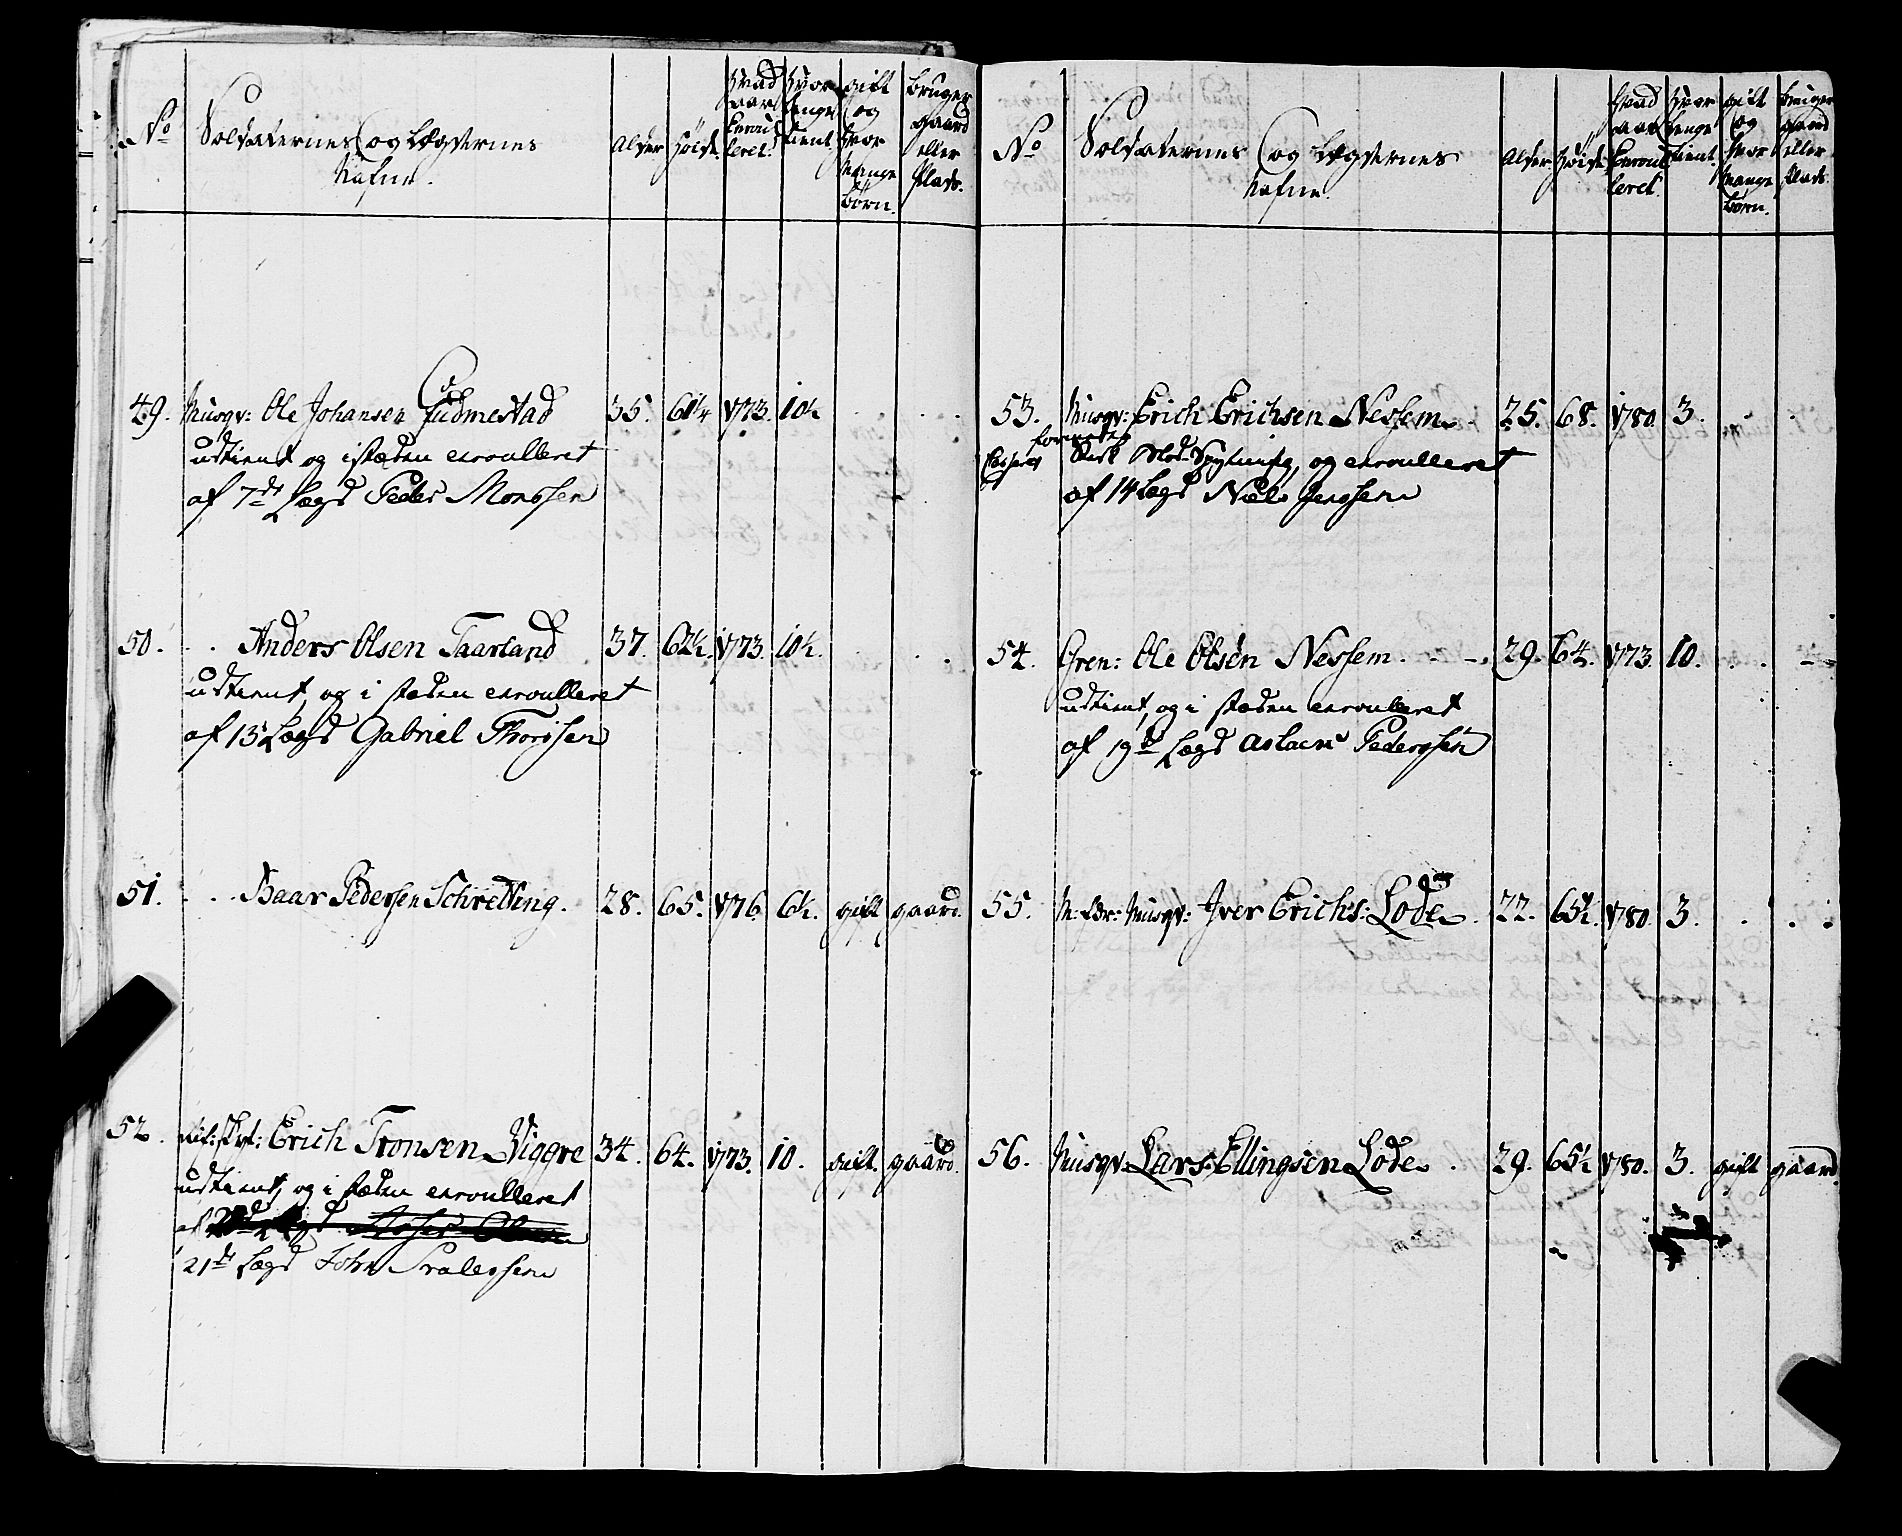 No Soldaternes og Lægdernes Alder Høide. Hvad aar Enroulleret. Hvor lenge tient. gift og Hvor Mange Börn. bruger gaard eller Plads.
Nafne.
49. Musqv: Ole Johansen Gudmestad 35. 61¼ 1773. 10½ . . .
udtient og i stæden enroulleret
af 7de Lægd Peder Monsen
50. . . Anders Olsen Taarland 37. 62½. 1773. 10½. . . .
udtient, og i stæden enroulleret
af 13 Lægd Gabriel Thorsen
51. . . Baar Pedersen Schretting. 28. 65. 1776. 6½. gift gaard.
52. Erich Tronsen Viggre 34. 64. 1773. 10. gift. gaard.
udtient, og i stæden enroulleret
af
21de Lægd John
No Soldaternes og Lægdernes Alder Høide Hvad aar Enroulleret. Hvor lenge tient. gift og Hvor Mange Börn. bruger gaard eller Plads.
Nafne.
53. Musqv: Erich Erichsen Nessem. 25. 68. 1780. 3. . .
Casseres og enroulleret
af 14 Lægd Niels
54. Gren: Ole Olsen Nessem. - -. 29. 64. 1773 10. . . -
udtient, og i stæden enroulleret
af 19de Lægd Aslach Pedersen
55. Musqv: Iver Erichs: Lode. 22. 65½. 1780. 3. . . .
56. Musqv: Lars Ellingsen Lode. 29. 65½ 1780. 3. gift gaard.